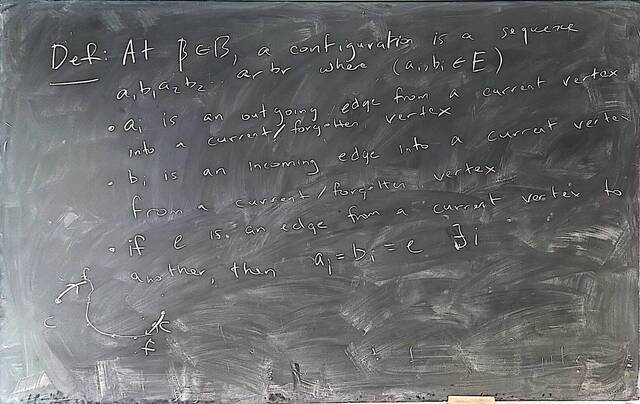 Def: At β ∈ B, a configuration is a sequence
a₁b₁a₂b₂... arbr where (ai, bi ∈ E)
• ai is an outgoing edge from a current vertex
into a current/forgotten vertex
• bi is an incoming edge into a current vertex
from a current/forgotten vertex
• if e is an edge from a current vertex to
another, then ai = bi = e ∃i
f
c
c
f